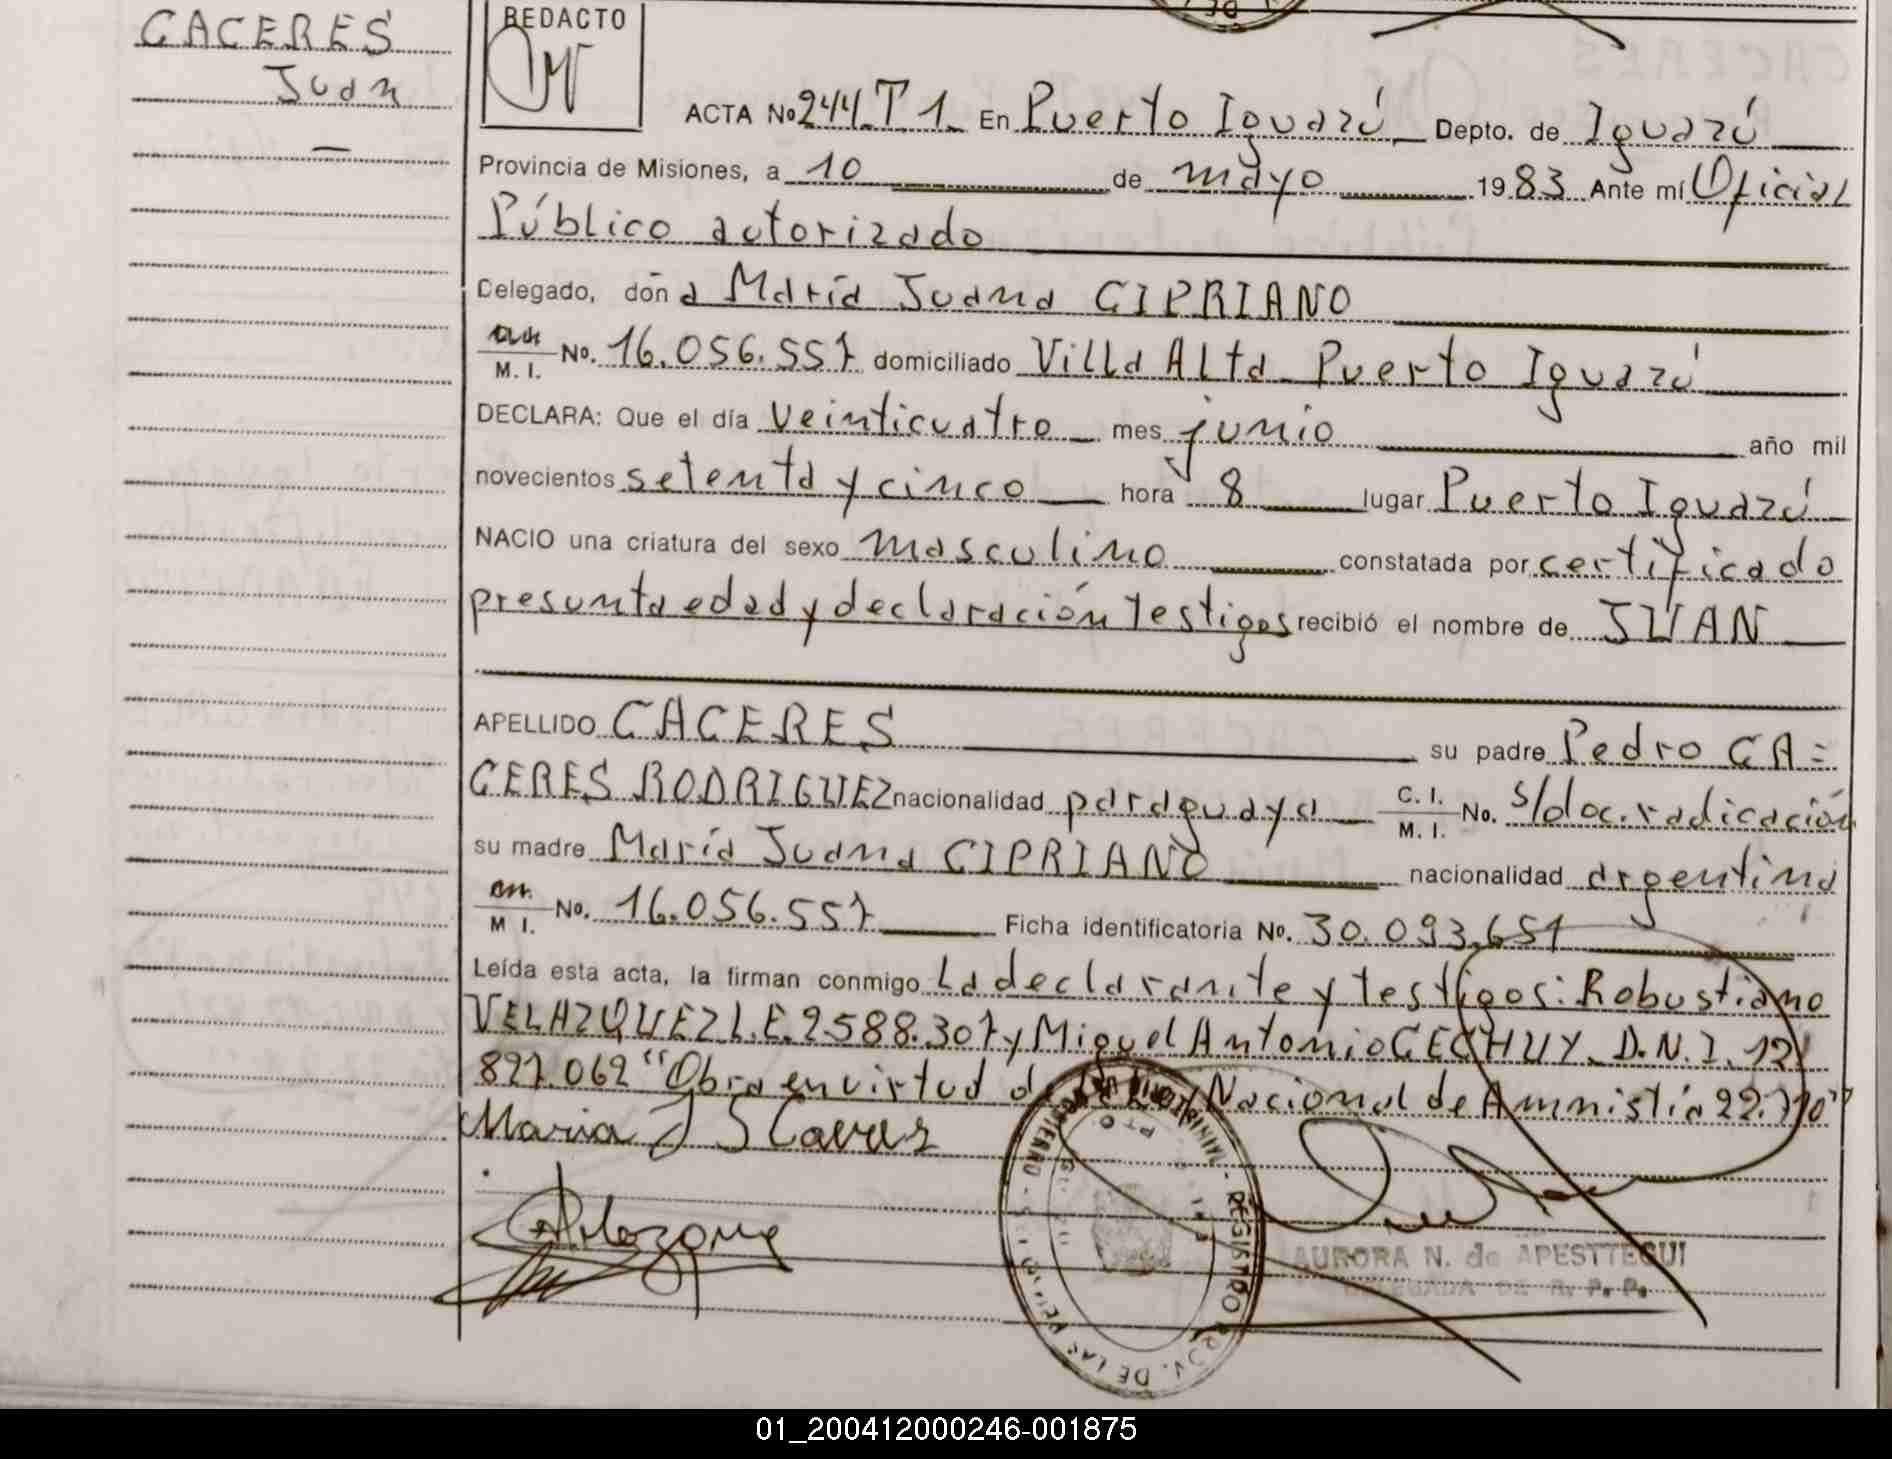 CACERES
Juan
REDACTO
ACTA No 244 T 1 En Puerto Iguazú Depto. de Iguazú
Provincia de Misiones, a 10 de mayo 1983 Ante mí Oficial
Público autorizado
Delegado, don a María Juana CIPRIANO
M. I. No. 16.056.557 domiciliado Villa Alta Puerto Iguazú
DECLARA: Que el día veinticuatro mes junio año mil
novecientos setenta y cinco hora 8 lugar Puerto Iguazú
NACIO una criatura del sexo masculino constatada por certificado
presunta edad y declaración testigos recibió el nombre de JUAN
APELLIDO CACERES su padre Pedro CA=
CERES RODRIGUEZ nacionalidad paraguaya C. I. M. I. No. s/doc. radicación
su madre María Juana CIPRIANO nacionalidad argentina
M I. No. 16.056.557 Ficha identificatoria No. 30.093.651
Leída esta acta, la firman conmigo La declarante y testigos: Robustiano
VELAZQUEZ L.E. 2588.307 y Miguel Antonio CECHUY D.N.I. 12
827.062 "Obra en virtud de Ley Nacional de Amnistía 22.710"
Maria J S Caceres
REGISTRO PROV. DE LAS
AURORA N. de APESTTEGUI
DELEGADA DE R. P. P.
01_200412000246-001875